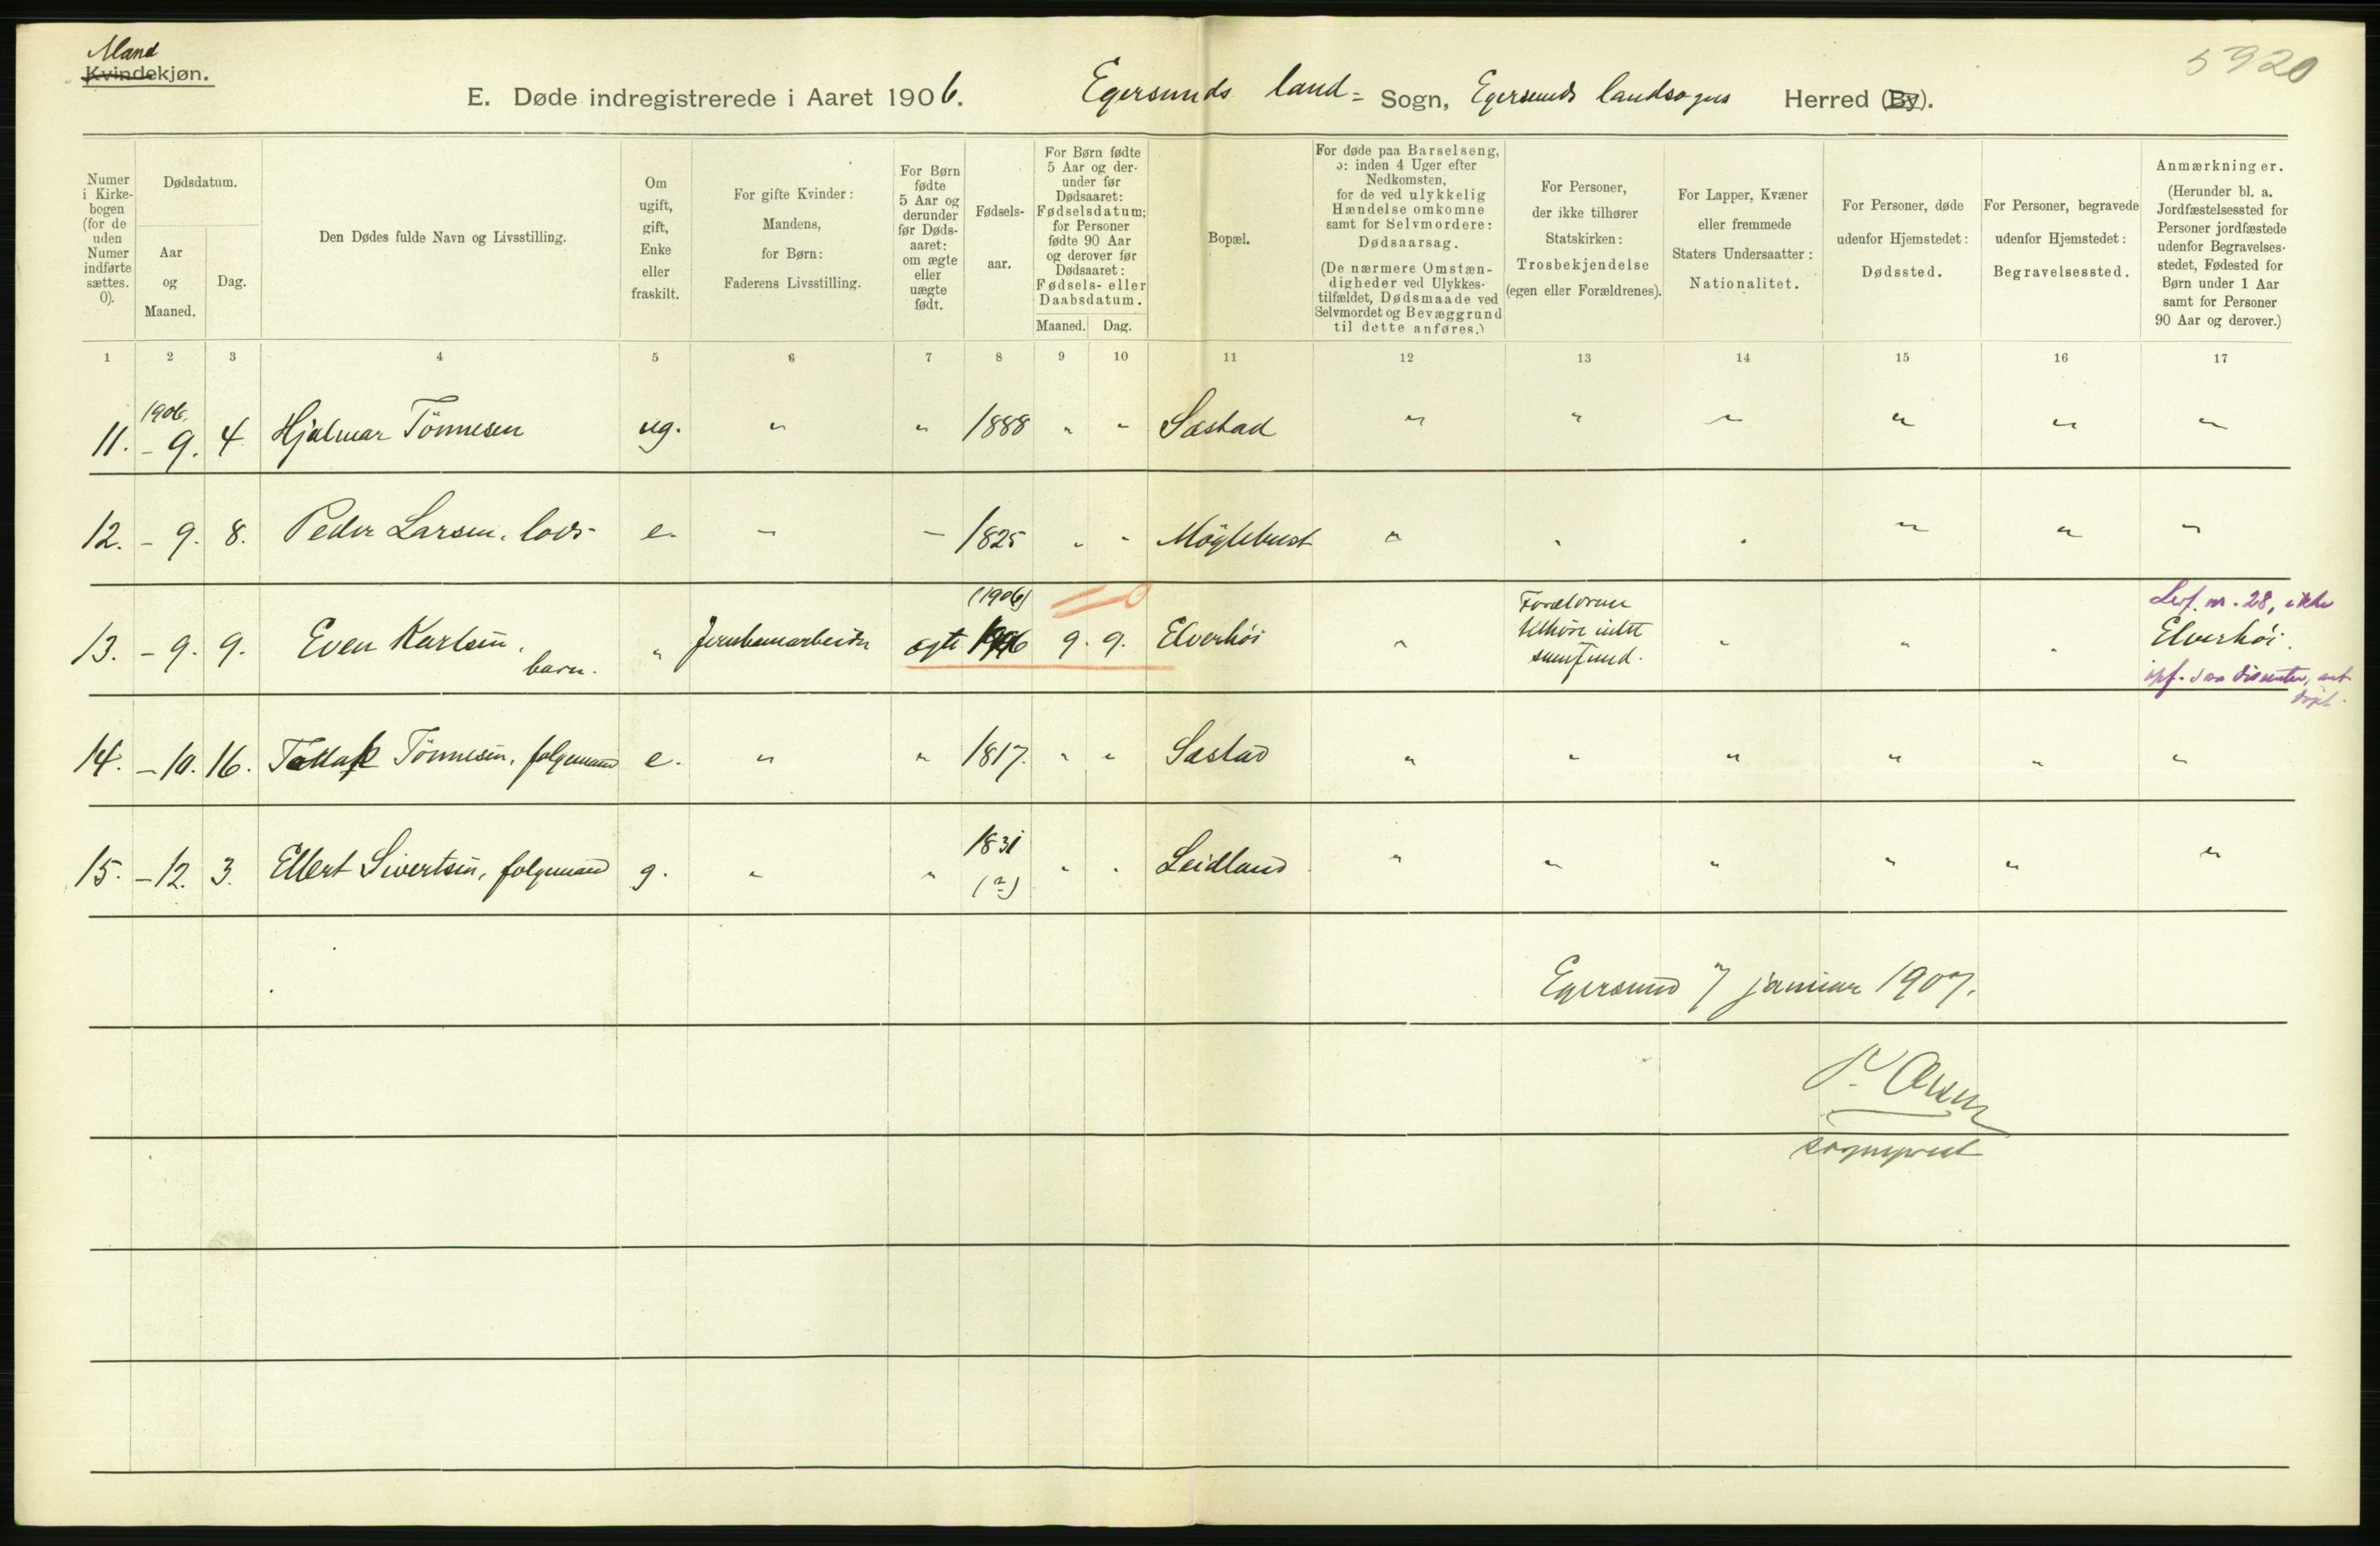 Mand
Kvindekjøn.
5920
E. Døde indregistrerede i Aaret 1906.
Egersunds land= Sogn, Egersunds landsogns Herred (By).
Numer i Kirke-bogen (for de uden Numer indførte sættes. 0).
Dødsdatum.
Aar og Maaned.
Dag.
Den Dødes fulde Navn og Livsstilling.
Om ugift, gift, Enke eller fraskilt.
For gifte Kvinder: Mandens, for Børn: Faderens Livsstilling.
For Børn fødte 5 Aar og derunder før Døds-aaret: om ægte eller uægte født.
Fødsels-aar.
For Børn fødte 5 Aar og der-under før Dødsaaret: Fødselsdatum; for Personer fødte 90 Aar og derover før Dødsaaret: Fødsels- eller Daabsdatum.
Maaned. Dag.
Bopæl.
For døde paa Barselseng, ɔ: inden 4 Uger efter Nedkomsten, for de ved ulykkelig Hændelse omkomne samt for Selvmordere: Dødsaarsag.
(De nærmere Omstæn-digheder ved Ulykkes-tilfældet, Dødsmaade ved Selvmordet og Bevæggrund til dette anføres.)
For Personer, der ikke tilhører Statskirken: Trosbekjendelse (egen eller Forældrenes).
For Lapper, Kvæner eller fremmede Staters Undersaatter: Nationalitet.
For Personer, døde udenfor Hjemstedet: Dødssted.
For Personer, begravede udenfor Hjemstedet: Begravelsessted.
Anmærkninger.
(Herunder bl. a. Jordfæstelsessted for Personer jordfæstede udenfor Begravelses-stedet, Fødested for Børn under 1 Aar samt for Personer 90 Aar og derover.)
1 2 3 4 5 6 7 8 9 10 11 12 13 14 15 16 17
1906.
11. - 9. 4. Hjalmar Tönnesen ug. " " 1888 " " Sæstad " " " " " "
12. - 9. 8. Peder Larsen, lods e. - - 1825 " " Möglebust " " " " " "
(1906)
13. - 9. 9. Even Karlsen, barn. " Jernbanearbeider ægte 1906 9. 9. Elverhöi " Forældrene tilhöre intet samfund. " " "
nr. 28, ikke
Elverhöi.
14. - 10. 16. Tönnesen, folgemand e. " " 1817. " " Sæstad " " " " " "
15. - 12. 3. Ellert Sivertsen, folgemand g. " " 1831 (?) " " Leidland " " " " " "
Egersund 7 januar 1907.
sogneprest